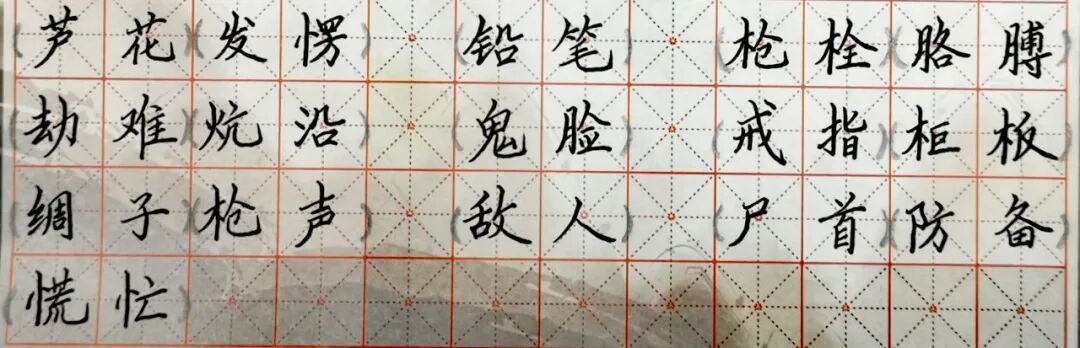 (芦花)(发愣) (铅笔) (枪栓)(胳膊)
(劫难)(炕沿) (鬼脸) (戒指)(柜板)
(绸子)(枪声) (敌人) (尸首)(防备)
(慌忙)